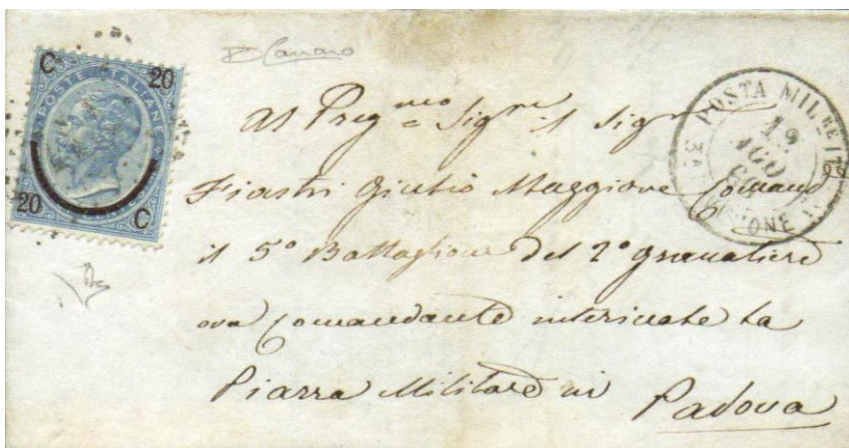 C 20
POSTE ITALIANE
20 C
POSTA MIL
19
AGO
Al Preg.mo Sig.re il Sig.r
Fiastri Giulio Maggiore Comand
il 5º Battaglione del 2º granatieri
ora Comandante interinale la
Piazza Militare di
Padova